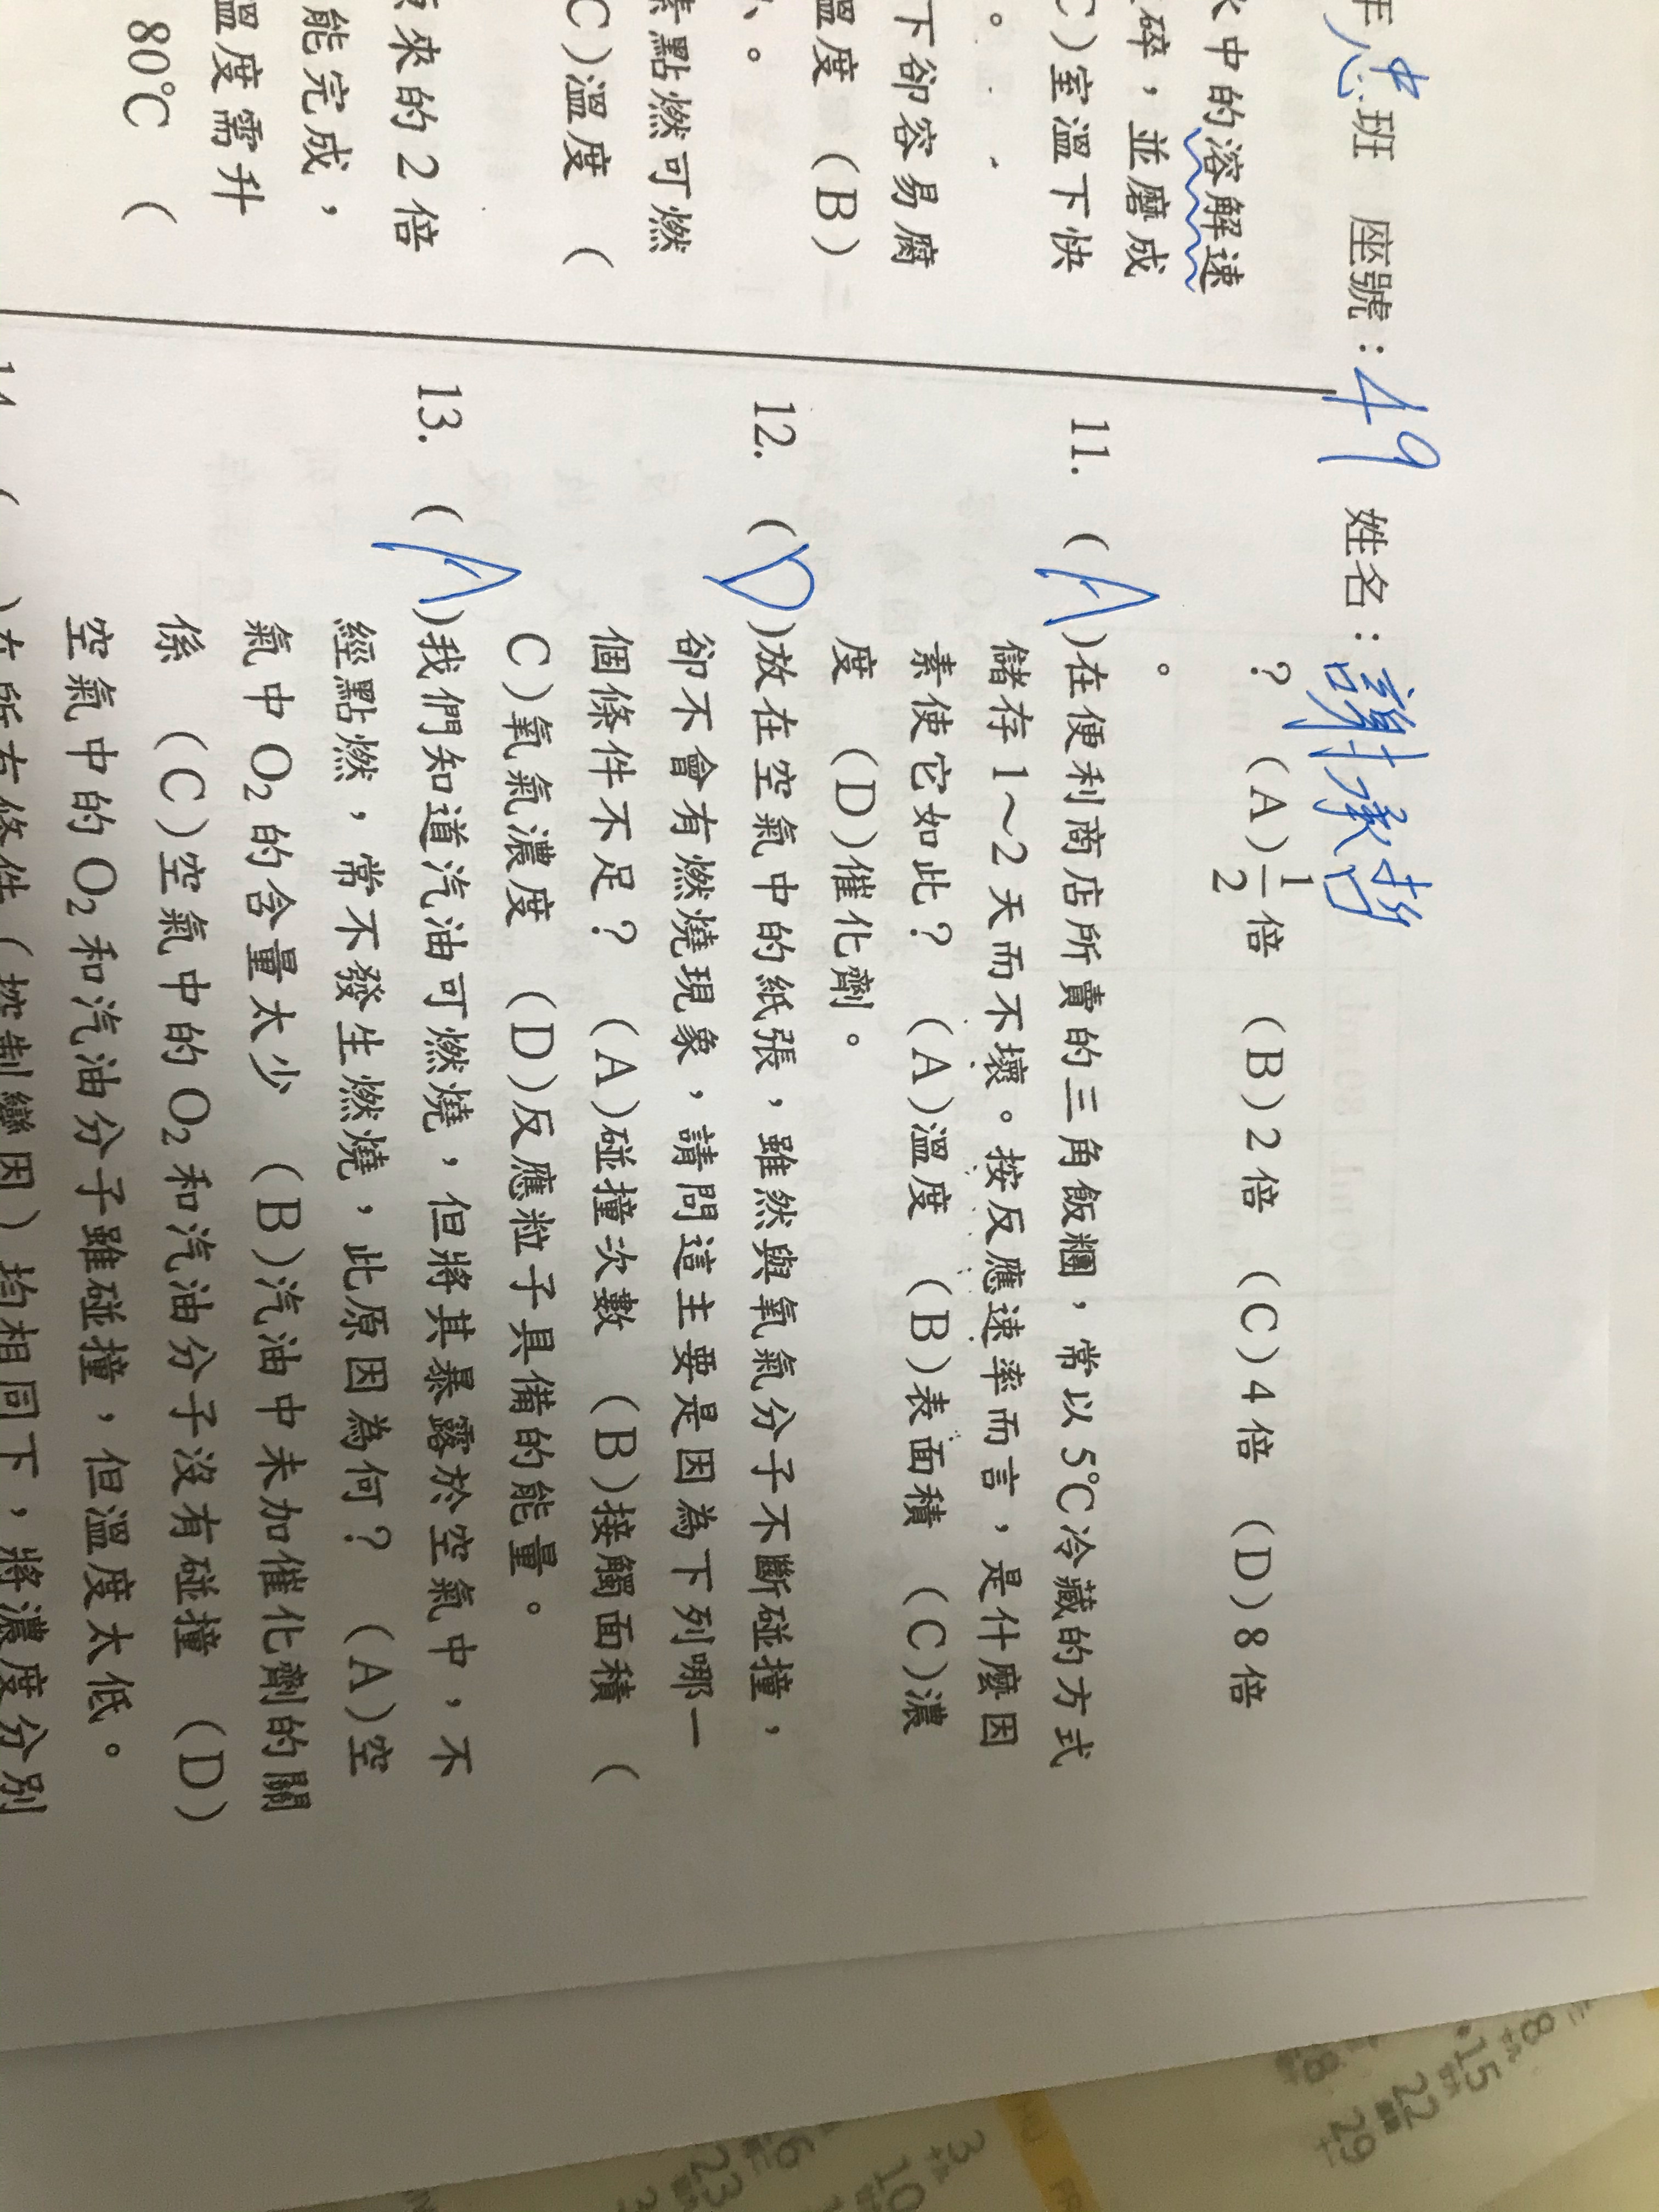 忠班 座號：49 姓名：謝承哲
水中的溶解速
碎，並磨成
C）室溫下快
。
下卻容易腐
溫度 （B）
、。
素點燃可燃
C）溫度 （
來的 2 倍
能完成，
溫度需升
80℃ （
？ （A）1/2倍 （B）2 倍 （C）4 倍 （D）8 倍
。
11. （A）在便利商店所賣的三角飯糰，常以 5℃冷藏的方式
儲存 1～2 天而不壞。按反應速率而言，是什麼因
素使它如此？ （A）溫度 （B）表面積 （C）濃
度 （D）催化劑。
12. （D）放在空氣中的紙張，雖然與氧氣分子不斷碰撞，
卻不會有燃燒現象，請問這主要是因為下列哪一
個條件不足？ （A）碰撞次數 （B）接觸面積 （
C）氧氣濃度 （D）反應粒子具備的能量。
13. （A）我們知道汽油可燃燒，但將其暴露於空氣中，不
經點燃，常不發生燃燒，此原因為何？ （A）空
氣中 O₂ 的含量太少 （B）汽油中未加催化劑的關
係 （C）空氣中的 O₂ 和汽油分子沒有碰撞 （D）
空氣中的 O₂ 和汽油分子雖碰撞，但溫度太低。
14. （ ）在所有條件（控制變因）均相同下，將濃度分別
8
15
22
29
3
10
6
23